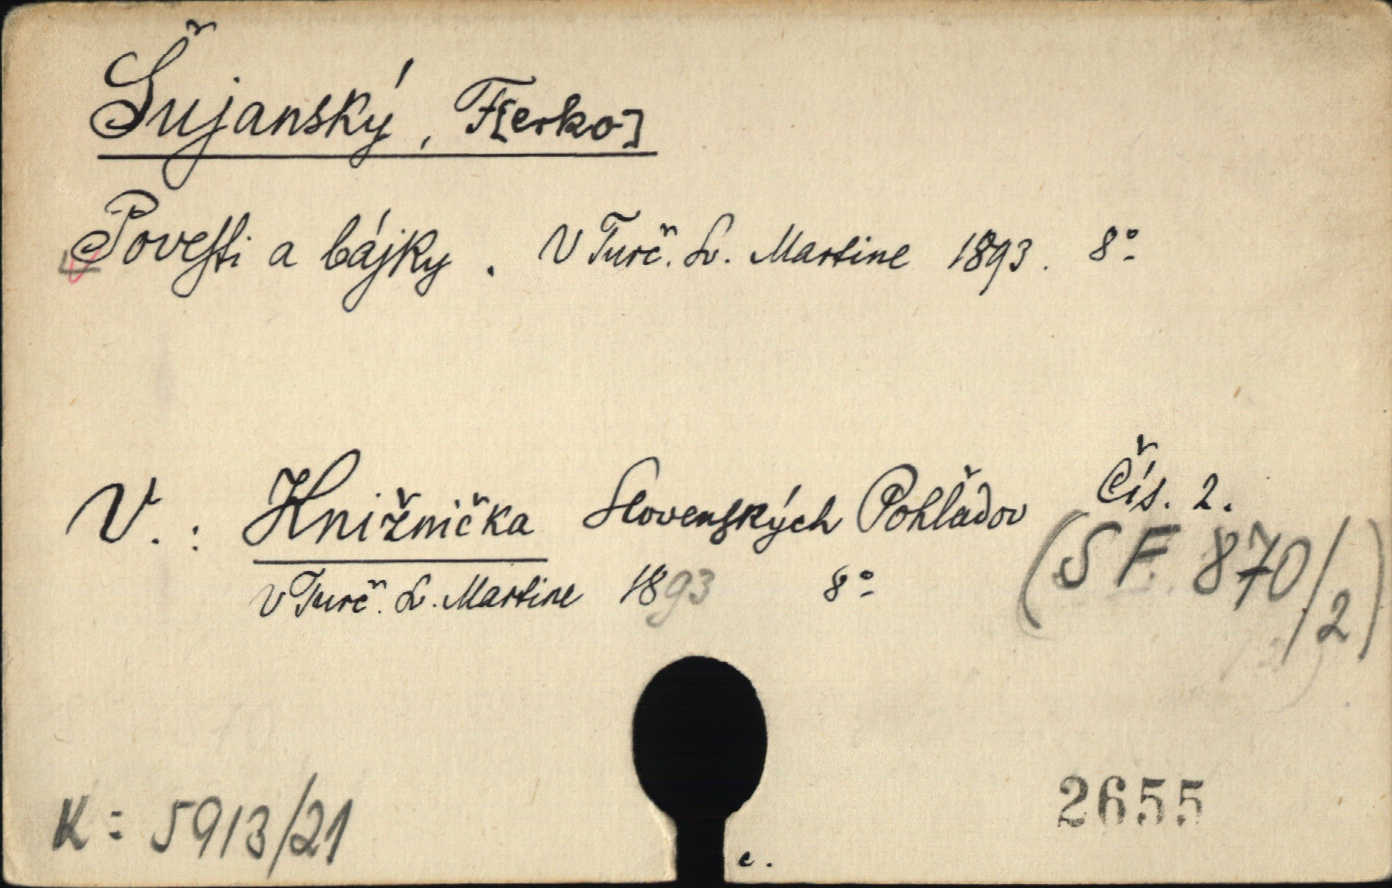 Šujanský, F[erko]
Povesti a bájky. V Turč. Sv. Martine 1893. 8°
V.: Knižnička Slovenských Pohľadov Čís. 2.
v Turč. Sv. Martine 1893 8°
(SF 870/2)
K: 5913/21
2655
c.